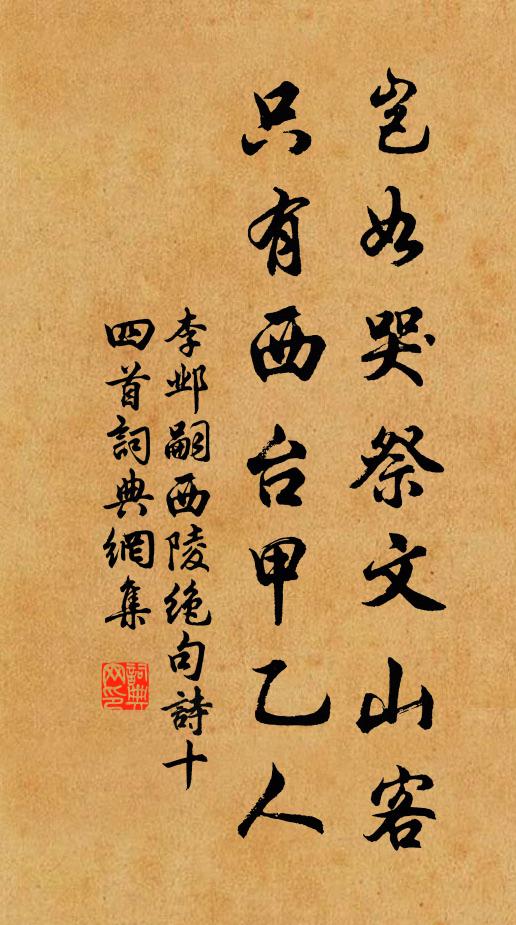 岂如哭祭文山客
只有西台甲乙人
李邺嗣西陵绝句詩十
四首詞典網集
詞典网印